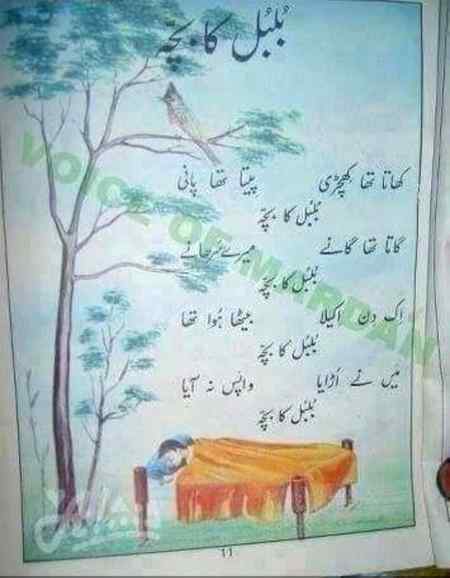 بُلبُل کا بچّہ
کھاتا تھا کھچڑی پیتا تھا پانی
بُلبُل کا بچّہ
گاتا تھا گانے میرے سَرہانے
بُلبُل کا بچّہ
اِک دِن اکیلا بیٹھا ہُوا تھا
بُلبُل کا بچّہ
مَیں نے اُڑایا واپس نہ آیا
بُلبُل کا بچّہ
VOICE OF MARDAN
۱۱